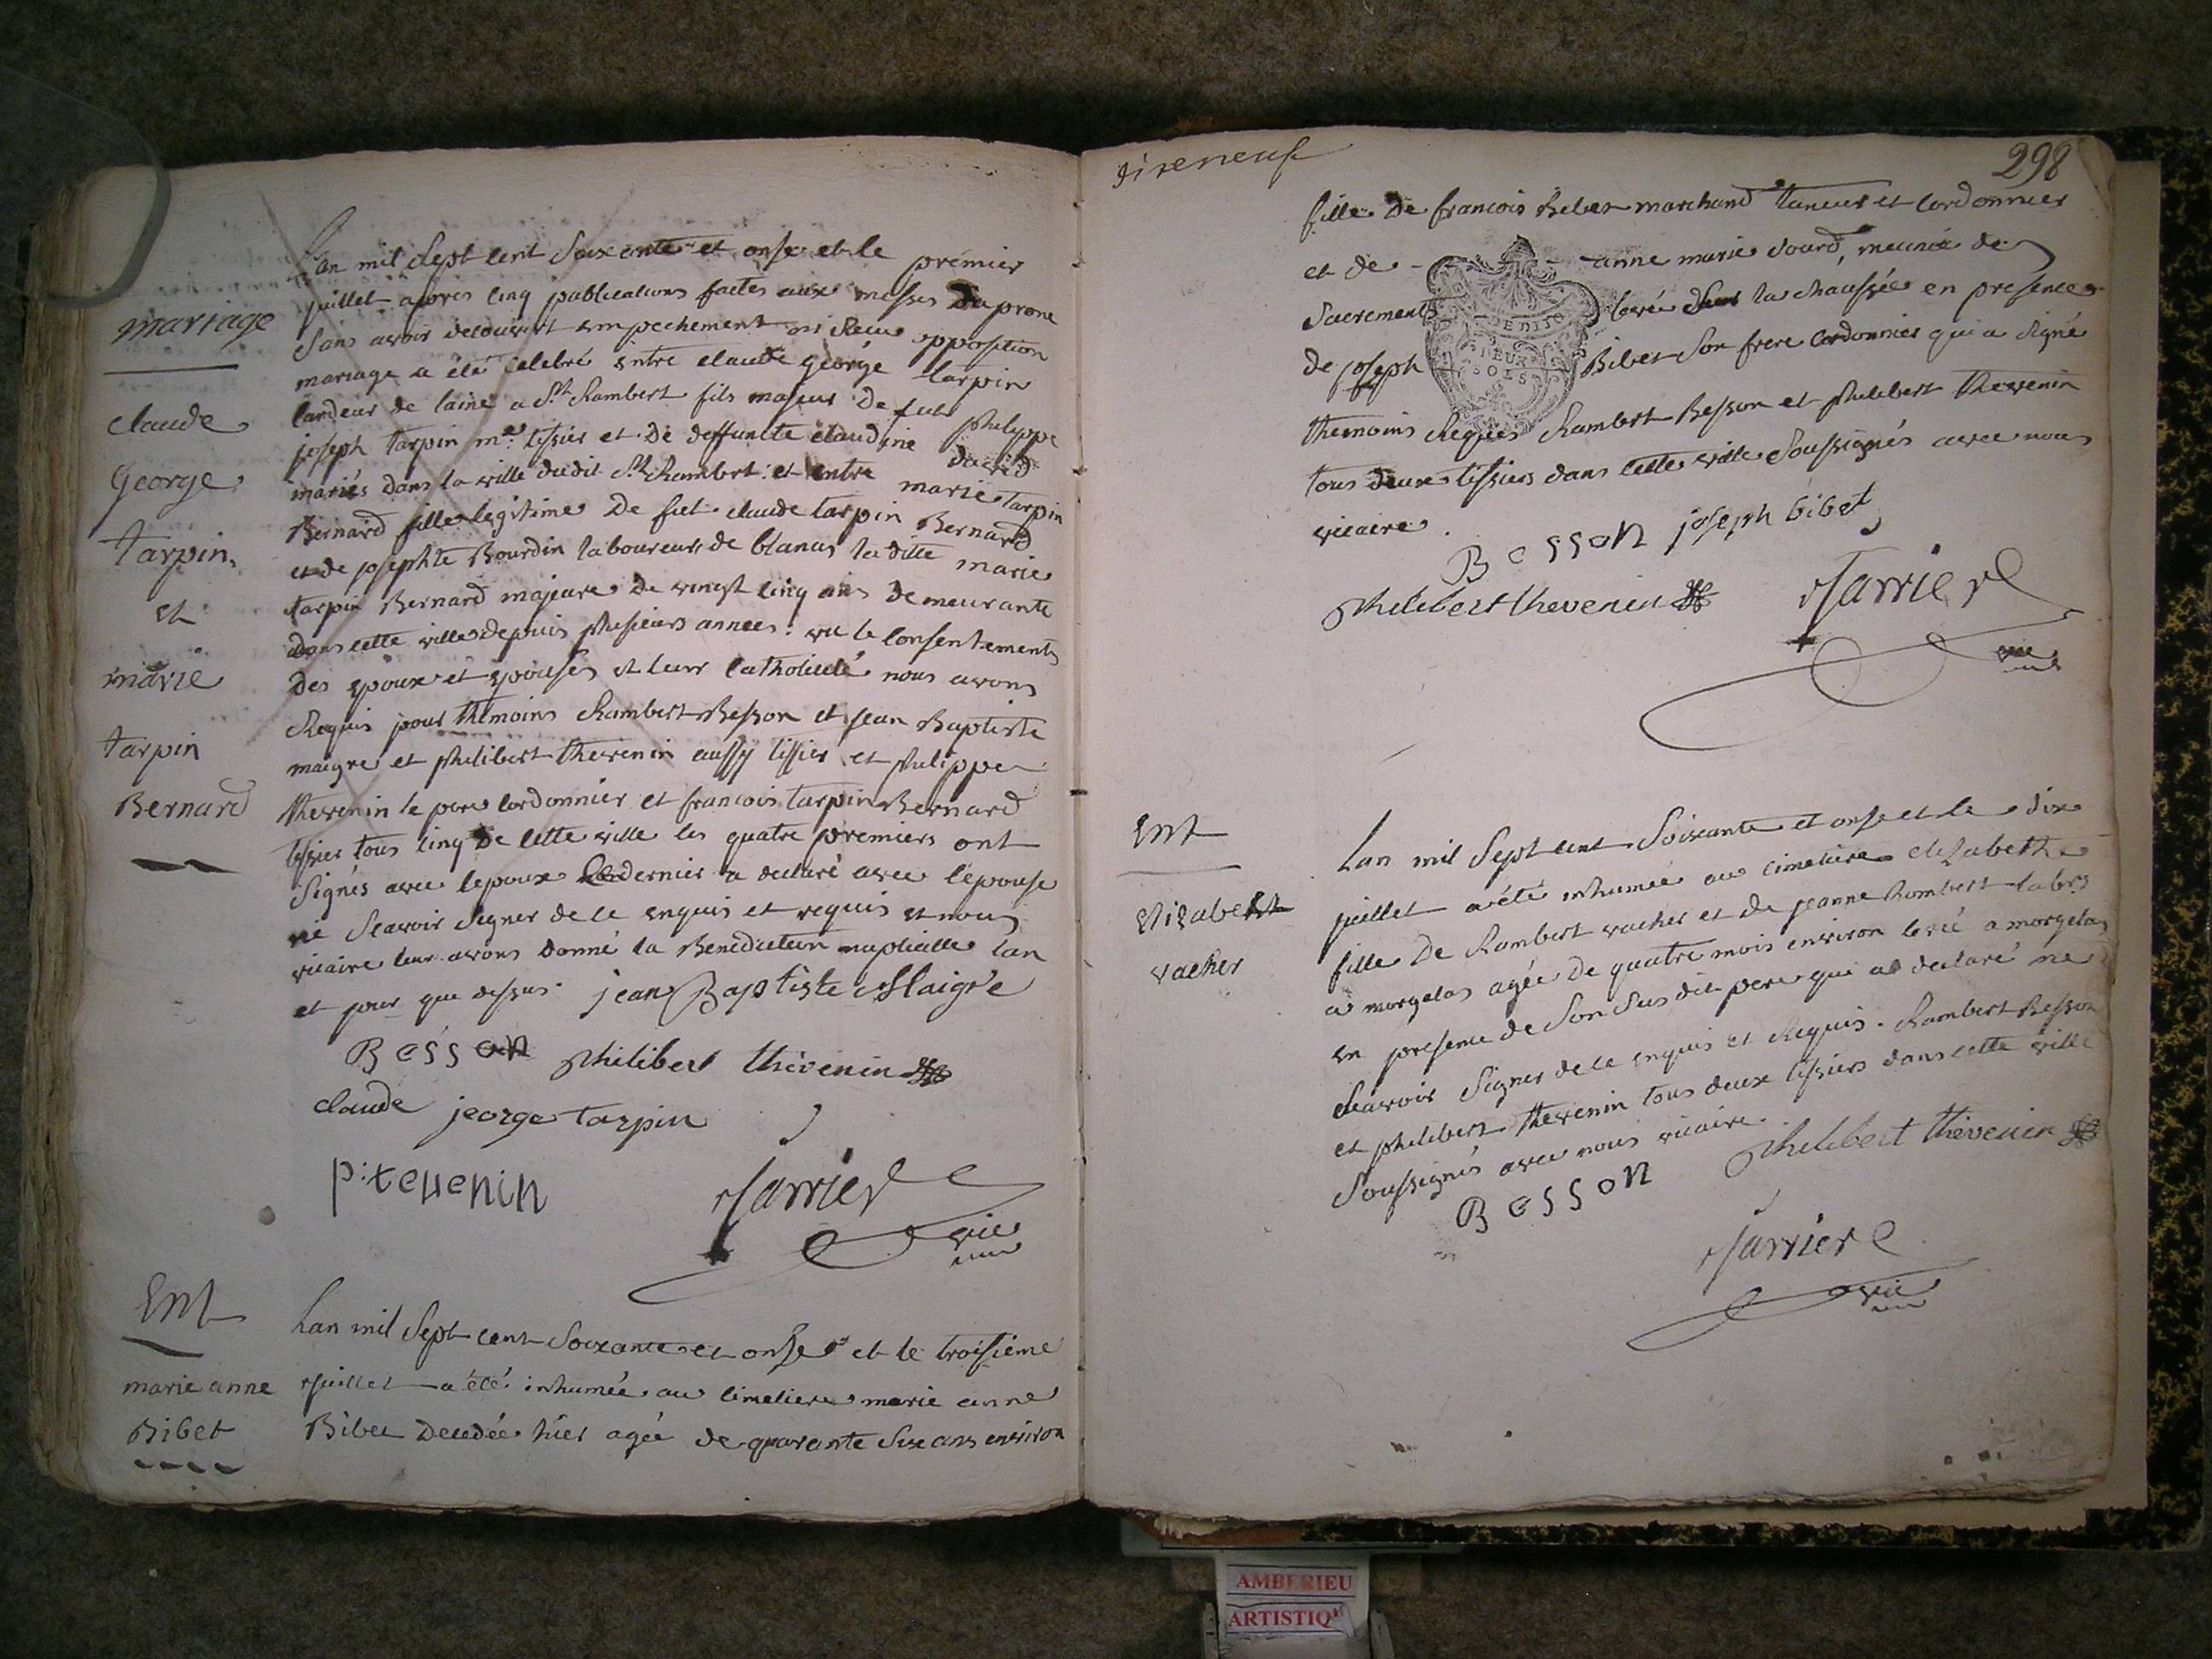 mariage
claude
George
tarpin
et
marie
tarpin
Bernard
Lan mil Sept cent Soixante et onse et le premier
juillet apres cinq publications faites aux messes du prone
Sans avoir decouvert empechement ni Receu opposition
mariage a été celebré entre claude géorge tarpin
cardeur de laine a St Rambert fils majeur de fut philippe
joseph tarpin me tissier et de deffuncte claudine david
mariés dans la ville dudit St Rambert: et entre marie tarpin
Bernard fille legitime de fut claude tarpin Bernard
et de josephte Bourdin laboureurs de blanas la ditte marie
tarpin Bernard majeure de vingt cinq ans demeurante
dans cette ville depuis plusieurs annees: vu le consentement
des epoux et epouses et leur catholicité nous avons
Requis pour themoins Rambert Besson et jean Baptiste
maigre et philibert thevenin aussy tissier et philippe
thevenin le pere cordonnier et francois tarpin Bernard
tissier tous cinq de cette ville les quatre premiers ont
Signés avec lepoux Le dernier a declaré avec lepouse
ne Scavoir Signer de ce enquis et requis et nous
vicaire leur avons donné la Benediction nuptialle lan
et jour que dessus. jean Baptiste Maigre
Besson philibert thévenin
claude jeorge tarpin
p: tevenin Jarrier vic
Ent
marie anne
Bibet
Lan mil Sept cent Soixante et onze et le troisieme
juillet a été inhumée au cimetiere marie anne
Bibet decedée hier agée de quarante Six ans environ
dixneuf
298
fille de francois Bibet marchand taneur et cordonnier
et de anne marie sourd, meunie de
Sacrements levée la chaussée en presence
DEUX
SOLS
de joseph Bibet Son frere cordonnier qui a Signé
themoins Requis Rambert Besson et philibert thevenin
tous deux tissiers dans cette ville Soussignés avec nous
vicaire.
Besson joseph bibet
philibert thevenin Jarrier
vic
Ent
Elizabeth
vacher
Lan mil Sept cent Soixante et onse et le dix
juillet a été inhumée au cimetiere elizabeth
fille de Rambert vacher et de jeanne Rombert labrs
a morgelas agée de quatre mois environ levée a morgelas
en presence de Son Sus dit pere qui a declaré ne
Scavoir Signer de ce enquis et Requis. Rambert Besson
et philibert thevenin tous deux tissiers dans cette ville
Soussignés avec nous vicaire.
Besson philibert thévenin
Jarrier
vic
AMBERIEU
ARTISTIQ